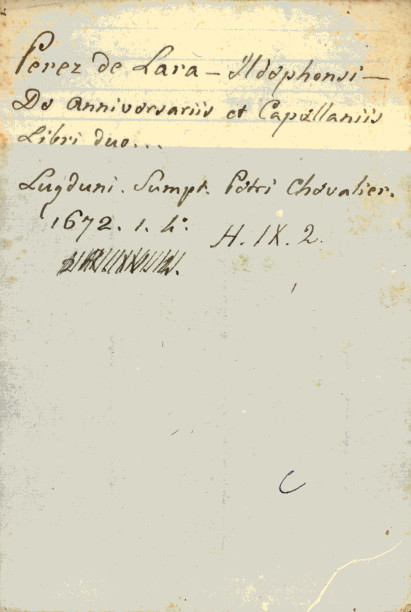 Perez de Lara - Ildephonsi -
De Anniversariis et Capellaniis
Libri duo...
Lugduni. Sumpt. Petri Chevalier.
1672. 1. 4º.
H. IX. 2.